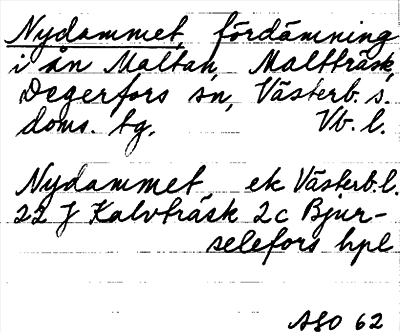 Nydammet, fördämning
i ån Maltan, Maltträsk,
Degerfors sn, Västerb. s.
doms. tg, Vb. l.
Nydammet, ek Västerb. l.
22 J Kalvträsk 2c Bjur-
selefors hpl
ASO 62